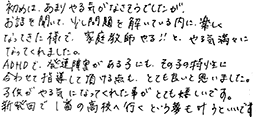 初めは、あまりやる気がなさそうでしたが、
お話を聞いて、少し問題を解いている内に、楽しく
なってきた様で、家庭教師やる!!と、やる気満々に
なってくれました。
ADHDで、発達障害がある子にも、その子の特性に
合わせて指導して頂ける点も、とても良いと思いました。
子供がやる気になってくれた事がとても嬉しいです。
新発田で1番の高校へ行くという夢も叶うといいです